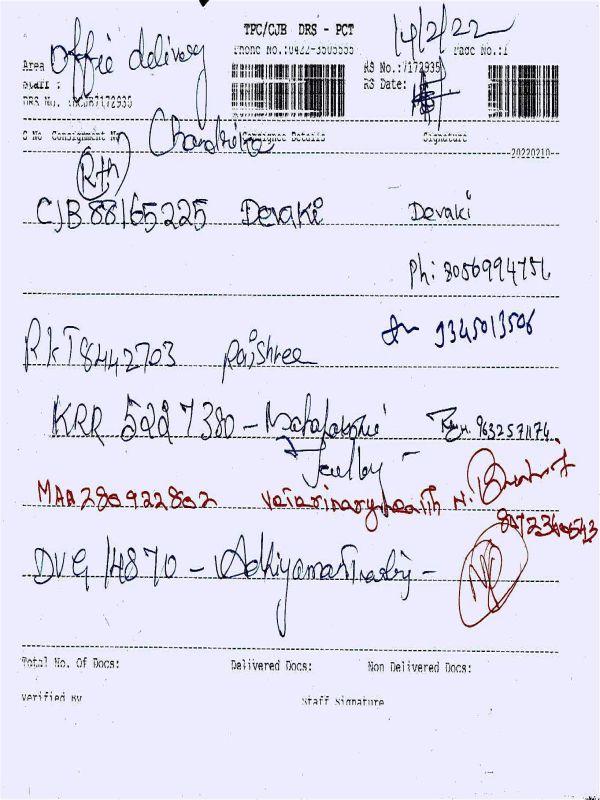 TPC/CJB DRS - PCT
14/2/22
Office delivery
Phone No.:0422-3505555
Page No.:1
Area
RS No.:7172935
Staff :
RS Date:
DRS No.
Chandrika
S No Consignment No Consignee Details Signature
20220210
Rth
CJB 88165225 Devaki Devaki
Ph: 8056994756
9345013506
RKT 8442703 Rajshree
KRR 5227380 - Mahalakshmi 9632571174
MAA 280922802 Veterinary health N.
DVG 14870 -
Total No. Of Docs: Delivered Docs: Non Delivered Docs:
Verified By Staff Signature